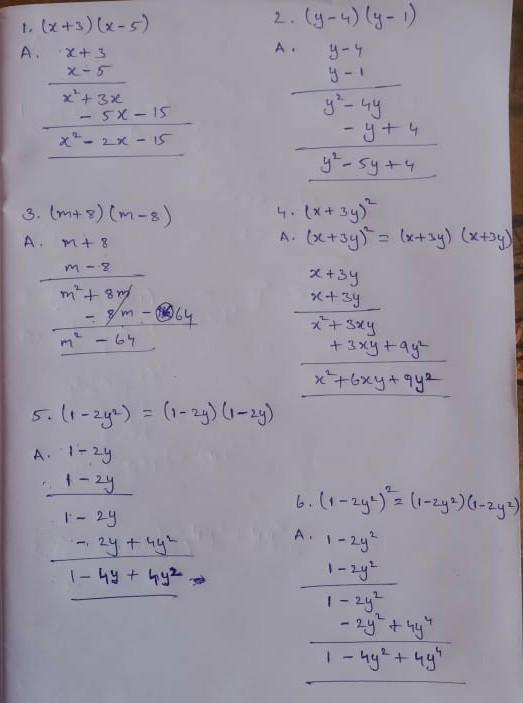 1. (x+3)(x-5)
A. x+3
x-5
x²+3x
- 5x - 15
x² - 2x - 15
2. (y-4)(y-1)
A. y-4
y-1
y² - 4y
- y + 4
y² - 5y + 4
3. (m+8)(m-8)
A. m+8
m-8
m² + 8m
- 8m - 64
m² - 64
4. (x+3y)²
A. (x+3y)² = (x+3y) (x+3y)
x+3y
x+3y
x²+3xy
+3xy+9y²
x²+6xy+9y²
5. (1-2y²) = (1-2y)(1-2y)
A. 1-2y
1-2y
1-2y
- 2y + 4y²
1 - 4y + 4y²
6. (1-2y²)² = (1-2y²)(1-2y²)
A. 1-2y²
1-2y²
1-2y²
-2y²+4y⁴
1 - 4y² + 4y⁴